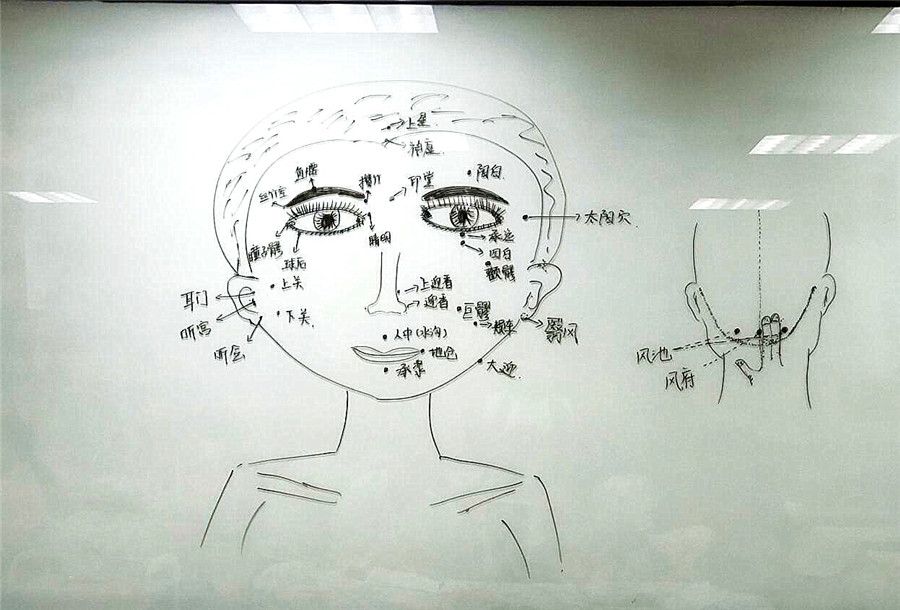 上星
神庭
鱼腰
攒竹
印堂
阳白
丝竹空
太阳穴
瞳子髎
球后
睛明
承泣
四白
颧髎
上关
上迎香
迎香
耳门
听宫
下关
巨髎
颊车
翳风
听会
人中(水沟)
地仓
承浆
大迎
风池
风府